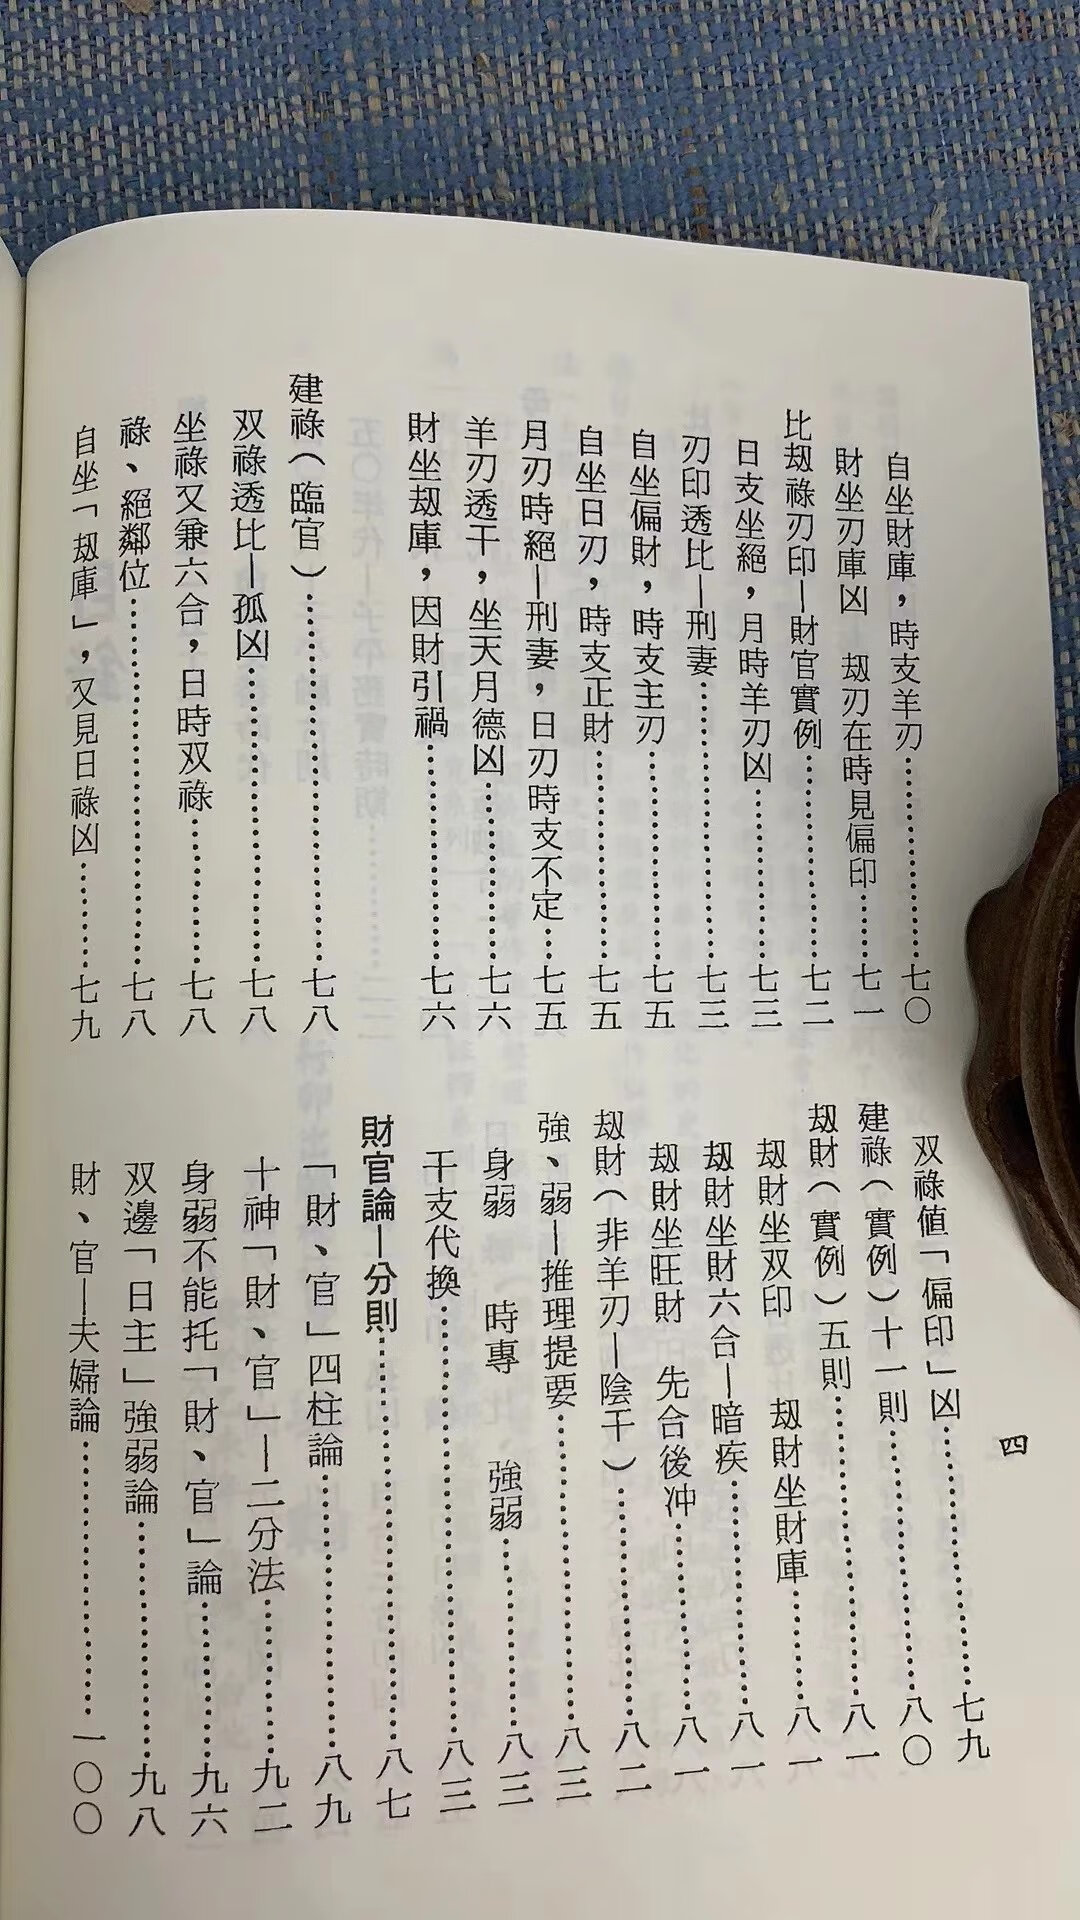 四
自坐財庫，時支羊刃……………七〇
財坐刃庫凶　刼刃在時見偏印……七一
比刼祿刃印—財官實例……………七二
日支坐絕，月時羊刃凶……………七三
刃印透比—刑妻……………七三
自坐偏財，時支主刃……………七五
自坐日刃，時支正財……………七五
月刃時絕—刑妻，日刃時支不定……七五
羊刃透干，坐天月德凶……………七六
財坐刼庫，因財引禍……………七六
建祿（臨官）……………七八
双祿透比—孤凶……………七八
坐祿又兼六合，日時双祿……………七八
祿、絕鄰位……………七八
自坐「刼庫」，又見日祿凶……………七九
双祿值「偏印」凶……………七九
建祿（實例）十一則……………八〇
刼財（實例）五則……………八一
刼財坐双印　刼財坐財庫……………八一
刼財坐財六合—暗疾……………八一
刼財坐旺財　先合後冲……………八一
刼財（非羊刃—陰干）……………八二
強、弱—推理提要……………八三
身弱　時專　強弱……………八三
干支代換……………八三
財官論—分則……………八七
「財、官」四柱論……………八九
十神「財、官」—二分法……………九二
身弱不能托「財、官」論……………九六
双邊「日主」強弱論……………九八
財、官—夫婦論……………一〇〇